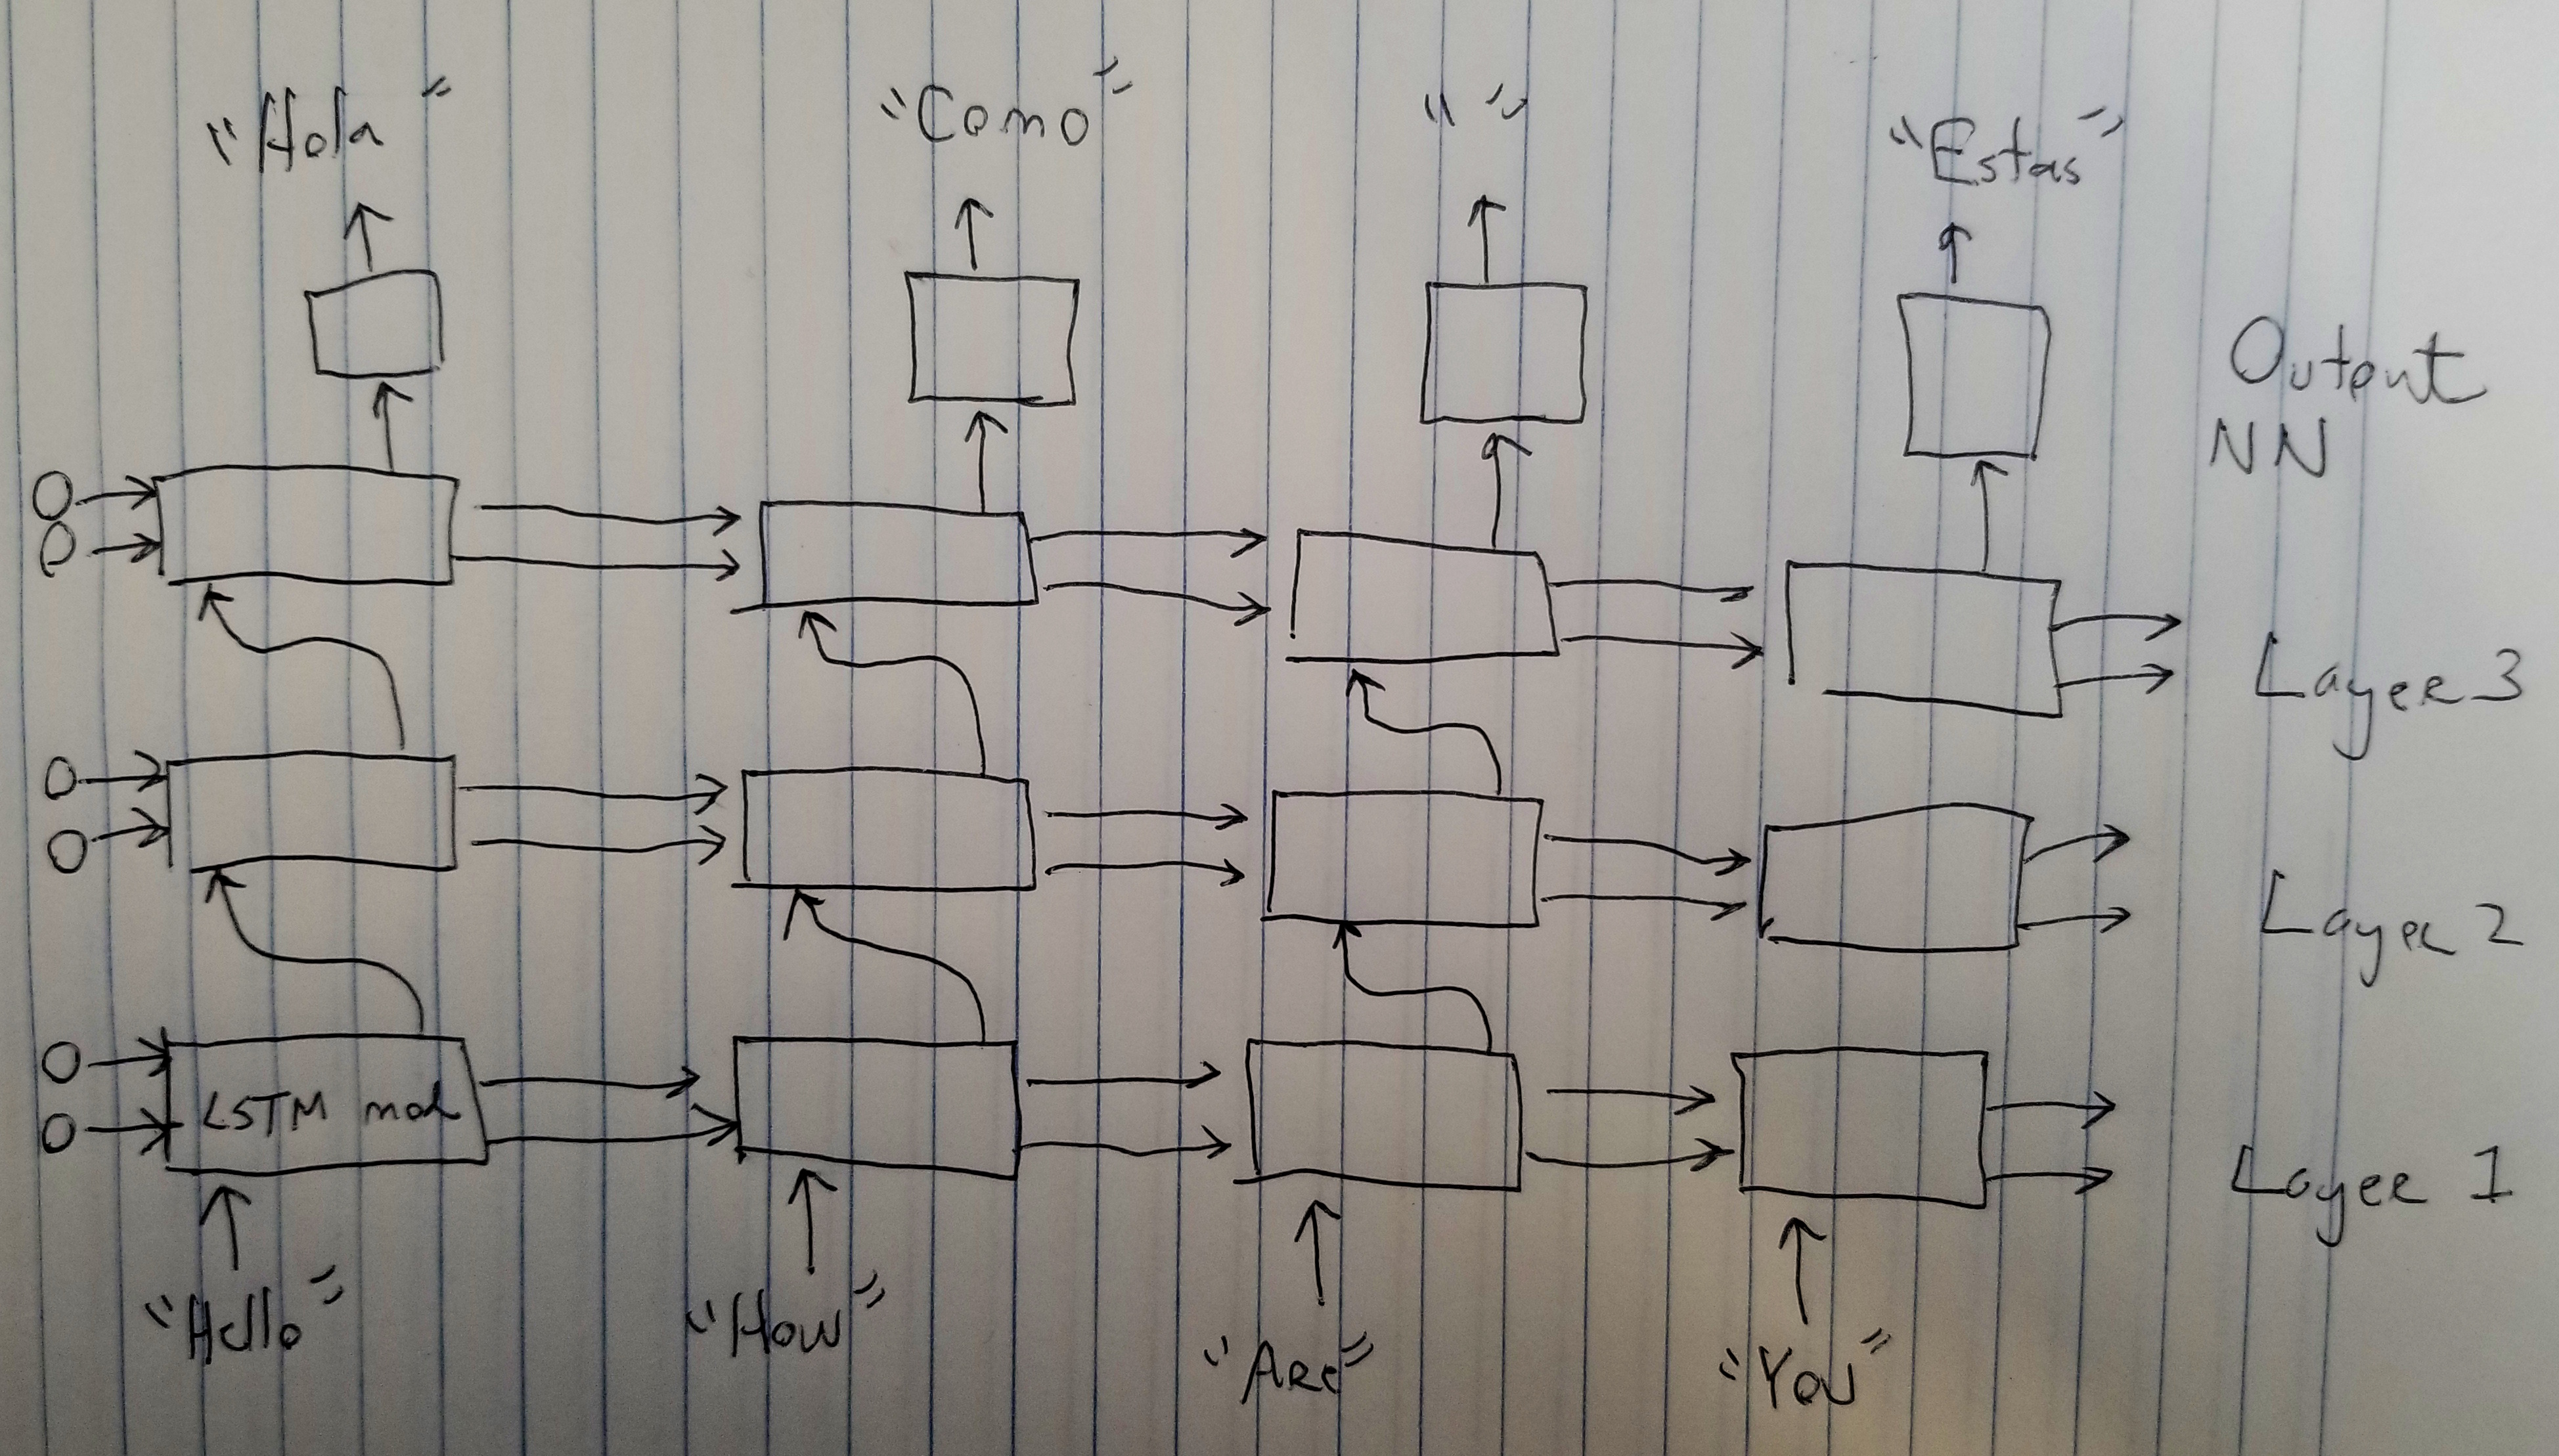 "Hola" "Como" " " "Estas"
Output
NN
0
0
Layer 3
0
0
Layer 2
0
0
LSTM mod
Layer 1
"Hello" "How" "Are" "You"